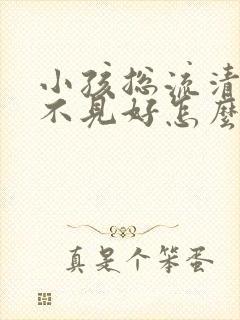 小孩总流清
不见好怎麽
真是个笨蛋